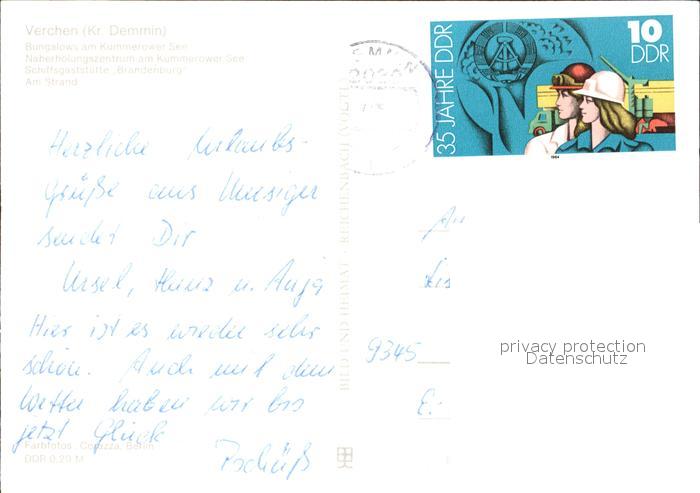 Verchen (Kr. Demmin)
Bungalows am Kummerower See
Naherholungszentrum am Kummerower See
Schiffsgaststätte „Brandenburg“
Am Strand
35 JAHRE DDR
10
DDR
1984
Herzliche Urlaubs-
grüße aus
sendet Dir
Ursel, Heinz u. Anja
Hier ist es wieder sehr
schön. Auch mit dem
Wetter haben wir bis
jetzt Glück
Tschüß
Farbfotos: Corazza, Berlin
DDR 0,20 M
BILD UND HEIMAT · REICHENBACH (VOGTL)
An
9345
E.
privacy protection
Datenschutz